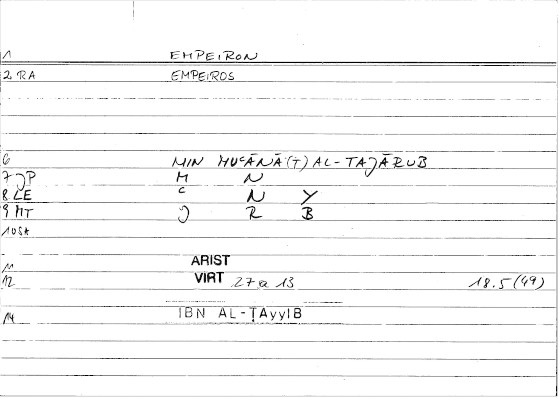 1 EMPEIRON
2 RA EMPEIROS
6 MIN MUʿĀNĀ(T) AL-TAJĀRUB
7 JP M N
8 LE ʿ N Y
9 MT J R B
10 SA
11 ARIST
12 VIRT 27 a 13 18.5 (49)
14 IBN AL-ṬAyyIB